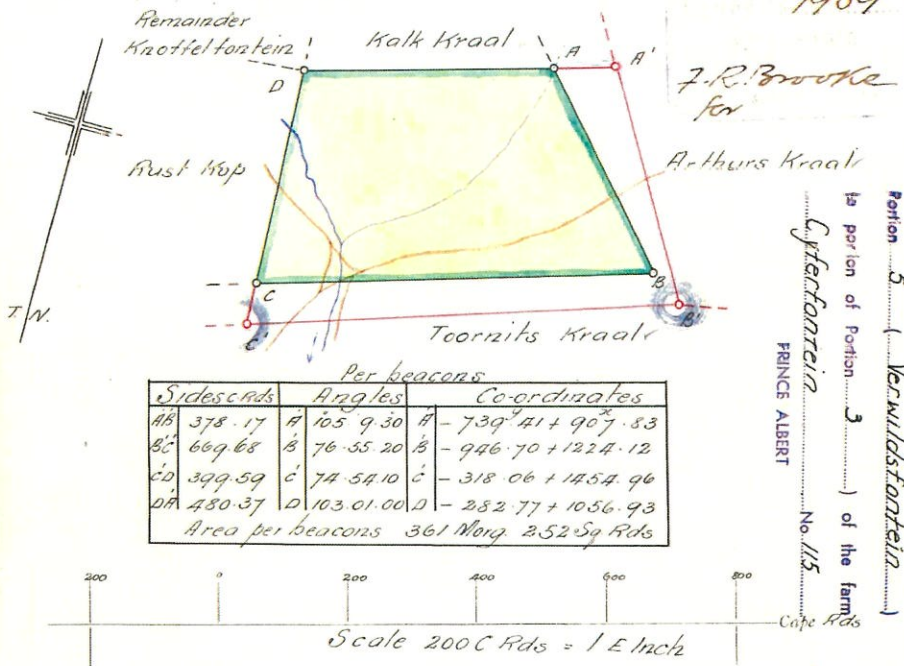 1909
Remainder
Knoffelfontein
Kalk Kraal
A
A'
D
F.R. Brooke
for
Rust Kop
Arthurs Kraal
T.N.
C
B
C'
B'
Toornits Kraal
Per beacons
Sides C Rds Angles Co-ordinates
y x
A'B' 378.17 A' 105.9.30 A' - 739.41 + 907.83
B'C' 669.68 B' 76.55.20 B' - 946.70 + 1224.12
C'D 399.59 C' 74.54.10 C' - 318.06 + 1454.96
DA' 480.37 D 103.01.00 D - 282.77 + 1056.93
Area per beacons 361 Morg. 252 Sq Rds
200 0 200 400 600 800
Cape Rds
Scale 200 C Rds = 1 E Inch
Portion 5 ( Verwildsfontein )
to portion of Portion 3 ) of the farm
Cyferfontein No. 115
PRINCE ALBERT